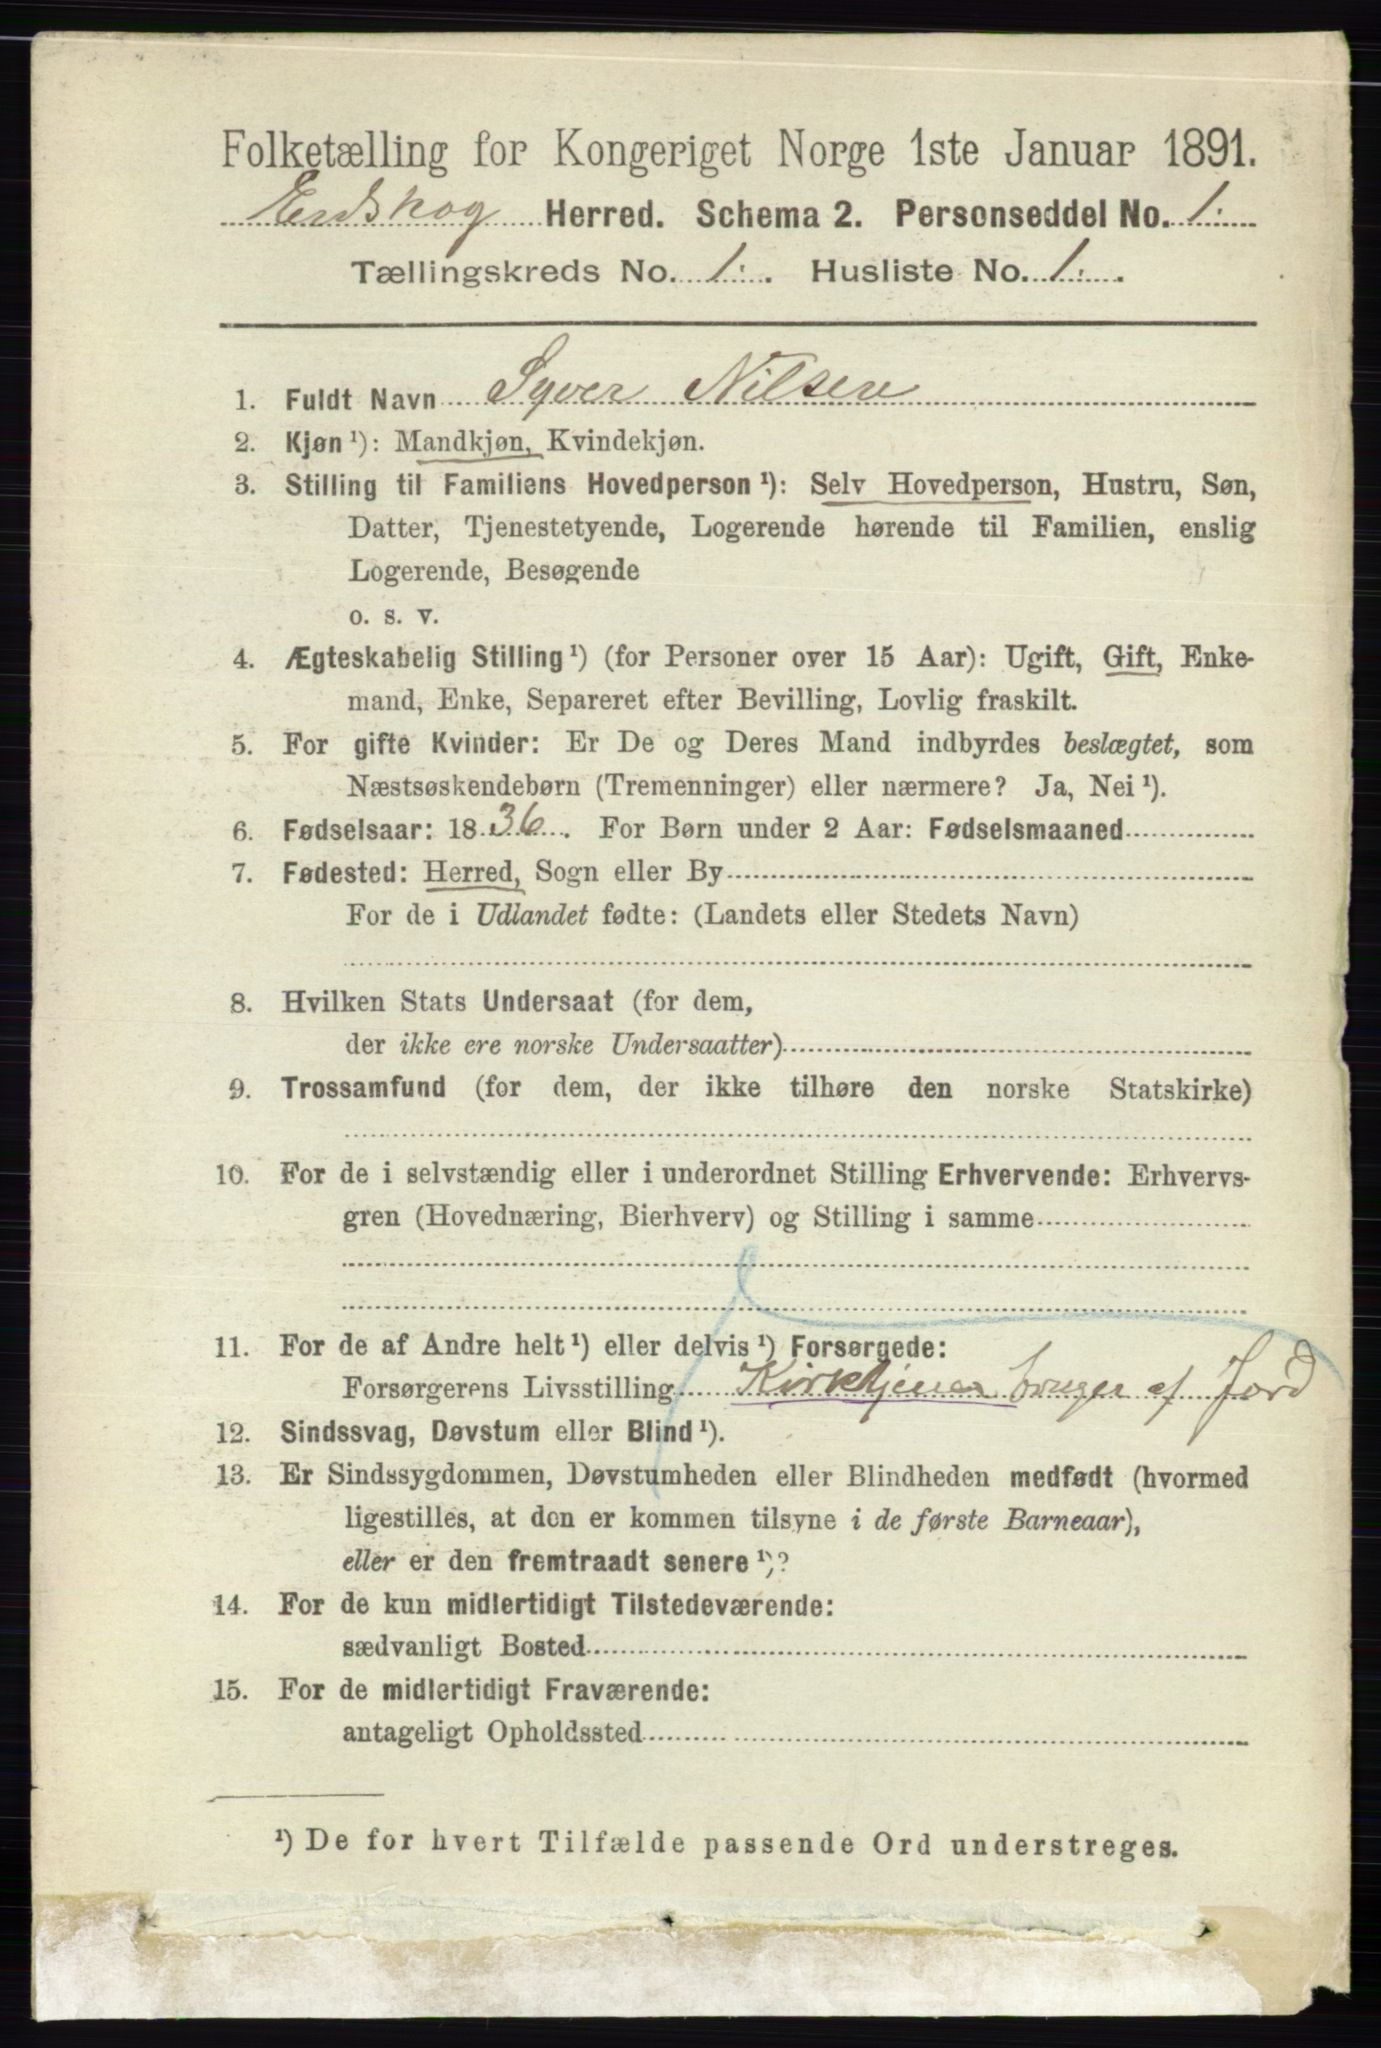 Folketælling for Kongeriget Norge 1ste Januar 1891.
Eidskog Herred. Schema 2. Personseddel No. 1.
Tællingskreds No. 1. Husliste No. 1.
1. Fuldt Navn Syver Nilsen
2. Kjøn ¹): Mandkjøn, Kvindekjøn.
3. Stilling til Familiens Hovedperson ¹): Selv Hovedperson, Hustru, Søn,
Datter, Tjenestetyende, Logerende hørende til Familien, enslig
Logerende, Besøgende
o. s. v.
4. Ægteskabelig Stilling ¹) (for Personer over 15 Aar): Ugift, Gift, Enke-
mand, Enke, Separeret efter Bevilling, Lovlig fraskilt.
5. For gifte Kvinder: Er De og Deres Mand indbyrdes beslægtet, som
Næstsøskendebørn (Tremenninger) eller nærmere? Ja, Nei ¹).
6. Fødselsaar: 1836. For Børn under 2 Aar: Fødselsmaaned
7. Fødested: Herred, Sogn eller By
For de i Udlandet fødte: (Landets eller Stedets Navn)
8. Hvilken Stats Undersaat (for dem,
der ikke ere norske Undersaatter)
9. Trossamfund (for dem, der ikke tilhøre den norske Statskirke)
10. For de i selvstændig eller i underordnet Stilling Erhvervende: Erhvervs-
gren (Hovednæring, Bierhverv) og Stilling i samme
11. For de af Andre helt ¹) eller delvis ¹) Forsørgede:
Forsørgerens Livsstilling Kirketjener bruger af Jord
12. Sindssvag, Døvstum eller Blind ¹).
13. Er Sindssygdommen, Døvstumheden eller Blindheden medfødt (hvormed
ligestilles, at den er kommen tilsyne i de første Barneaar),
eller er den fremtraadt senere ¹)?
14. For de kun midlertidigt Tilstedeværende:
sædvanligt Bosted
15. For de midlertidigt Fraværende:
antageligt Opholdssted
¹) De for hvert Tilfælde passende Ord understreges.